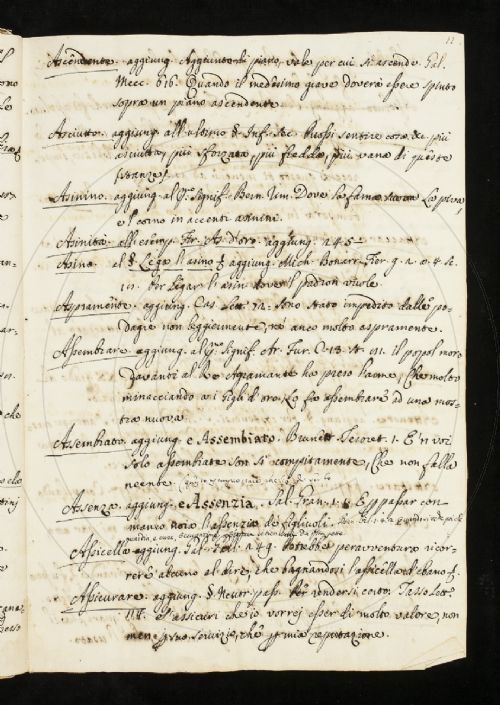 12
Ascendente. aggiung. Aggiunto di piano, vale per cui si ascende. Gal.
Mecc. 616. Quando il medesimo grave doverà essere spinto
sopra un piano ascendente
Asciutto. aggiung. all'ultimo § Inf. Sec. puossi sentire cosa &c. più
asciutta, più sforzata, più fredda, più vana di queste
stanze?
Asinino. aggiung. al p.º signif. Bern. rim. Dove la fama suona la piva,
e 'l corno in accenti asinini.
Asinità. all'esemp. Fir. As. d'oro. aggiung. 245
Asino. al § Legar l'asino §. aggiung. Mich. Bonarr. Fier. g. 2. a. 4. sc.
Per legar l'asin dove 'l padron vuole
Aspramente. aggiung. Cas. Lett. 72. Sono stato impedito dalle po-
dagre non leggiermente, ed anco molto aspramente.
Assembrare. aggiung. al p.º signif. Ar. Fur. C. 18. st. Il popol moro
davanti al Re Agramante ha preso l'arme, che molto
minacciando ai gigli d'oro, lo fa assembrare ad una mos-
tra nuova
Assembiato. aggiung. e Assembiato. Brunett. Tesoret. 1. E 'n voi
solo assembiate son sì compitamente, che non falla
neente
Assenzo. aggiung. e Assenzia. Sal. Gran. 1. 8. E passar con-
manzo noia l'assenzio de' figliuoli.
Assicella. aggiung. Gal. Gall. 249. Potrebbe peravventura ricor-
rere alcuno al dire, che bagnandosi l'assicella d'ebano §.
Assicurare. aggiung. § Neutr. pass. per rendersi certo. Tasso Lett.
118. S'assicuri che io vorrei esser di molto valore, non
meno per suo servizio, che per mia reputazione.